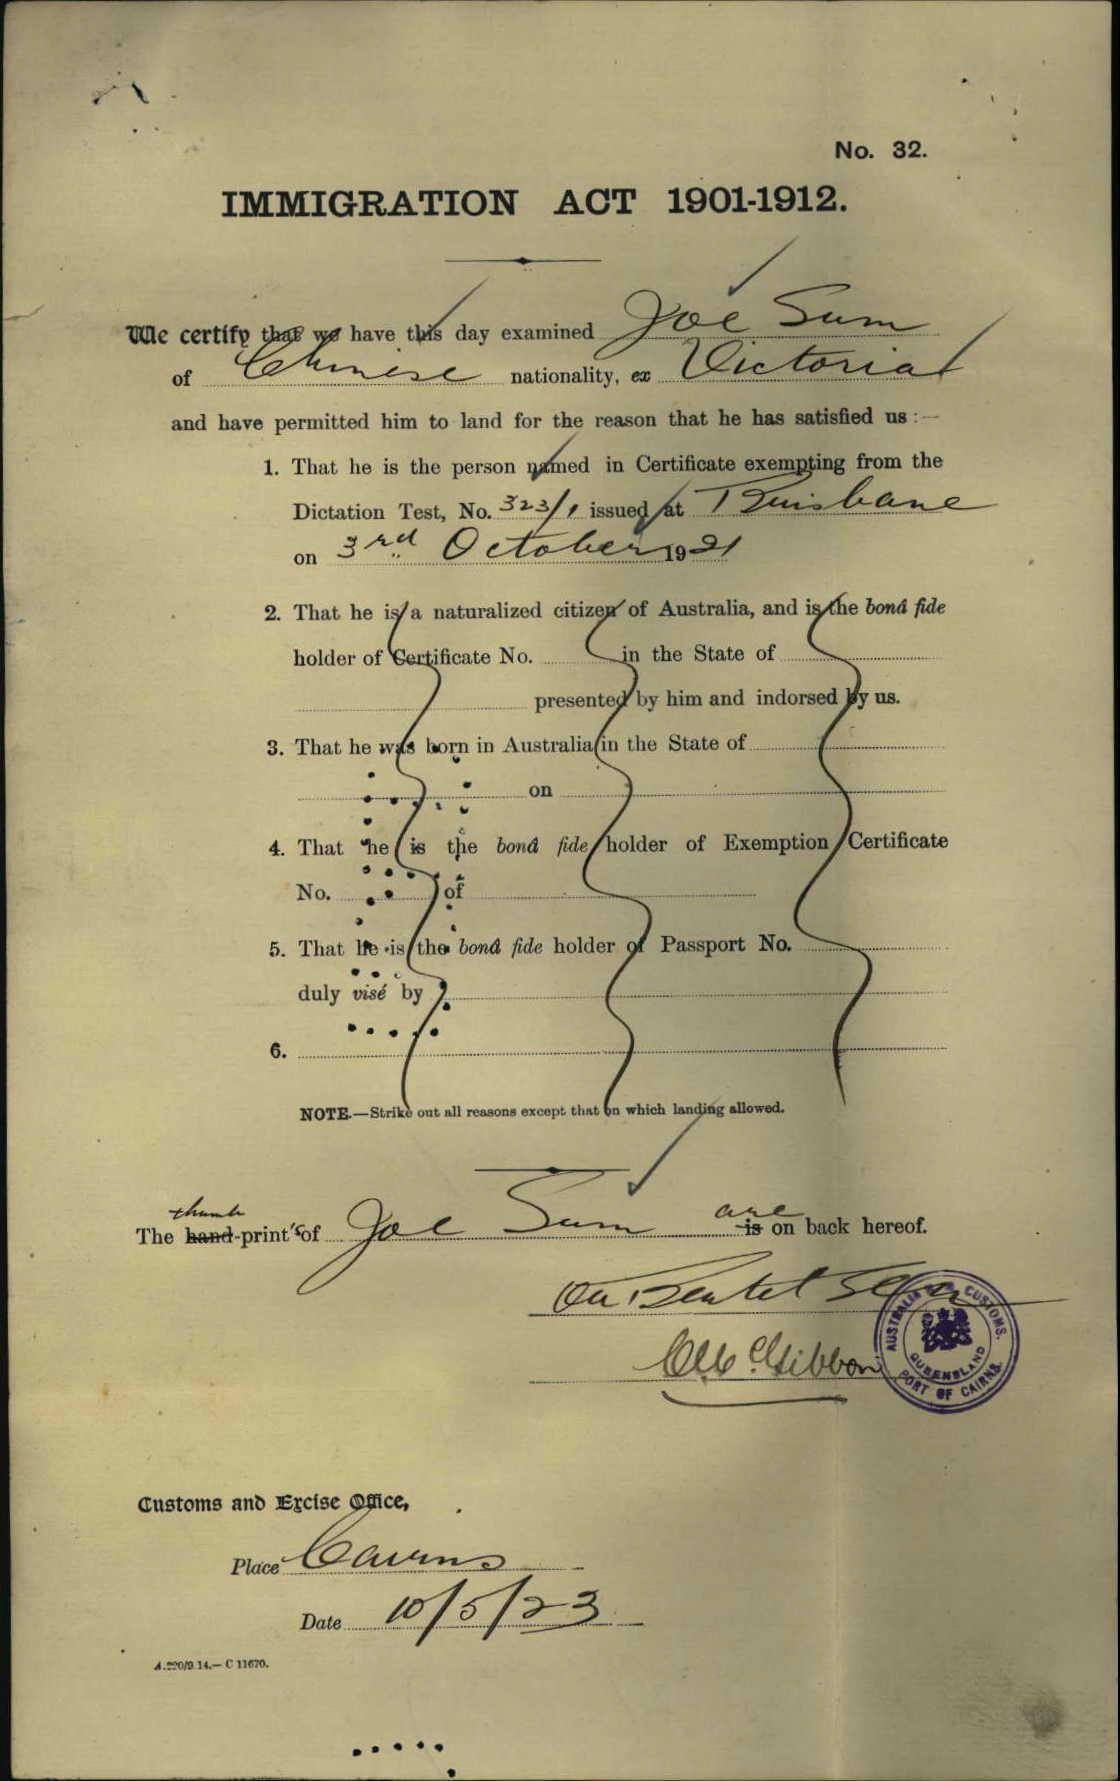 No. 32.
IMMIGRATION ACT 1901-1912.
We certify that we have this day examined Joe Sum
of Chinese nationality, ex Victoria
and have permitted him to land for the reason that he has satisfied us :—
1. That he is the person named in Certificate exempting from the
Dictation Test, No. 323/1 issued at Brisbane
on 3rd October 1921
2. That he is a naturalized citizen of Australia, and is the bonâ fide
holder of Certificate No. in the State of
presented by him and indorsed by us.
3. That he was born in Australia in the State of
on
4. That he is the bonâ fide holder of Exemption Certificate
No. of
5. That he is the bonâ fide holder of Passport No.
duly visé by
6.
NOTE.—Strike out all reasons except that on which landing allowed.
thumb are
The hand-print's of Joe Sum is on back hereof.
Gibbon
AUSTRALIA CUSTOMS.
QUEENSLAND
PORT OF CAIRNS.
Customs and Excise Office,
Place Cairns
Date 10/5/23
A.220/9.14.—C 11670.